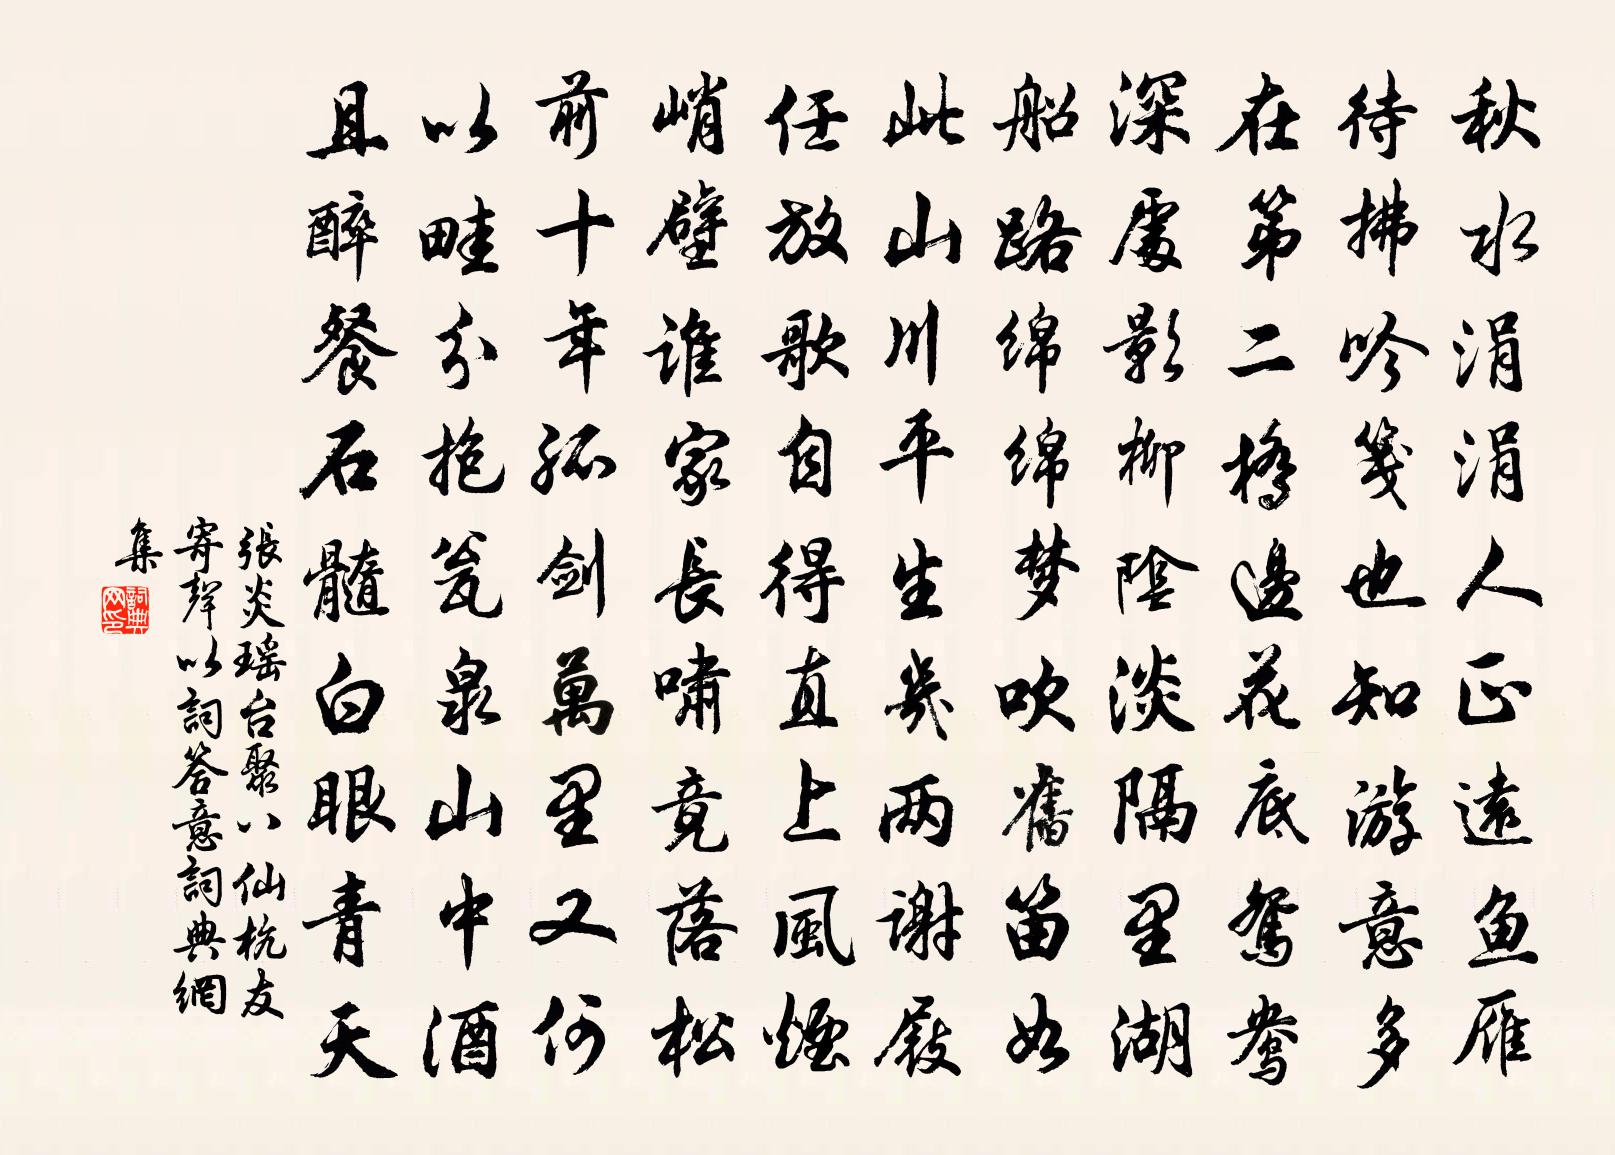 秋水涓涓人正遠魚雁
待拂吟箋也知游意多
在第二橋邊花底鴛鴦
深處影柳陰淡隔里湖
船路绵绵梦吹舊笛如
此山川平生幾两谢屐
任放歌自得直上風煙
峭壁谁家長嘯竟落松
前十年孤劍萬里又何
以畦分抱瓮泉山中酒
且醉餐石髓白眼青天
張炎瑶台聚八仙杭友
寄聲以詞答意詞典網
集
詞典
网印